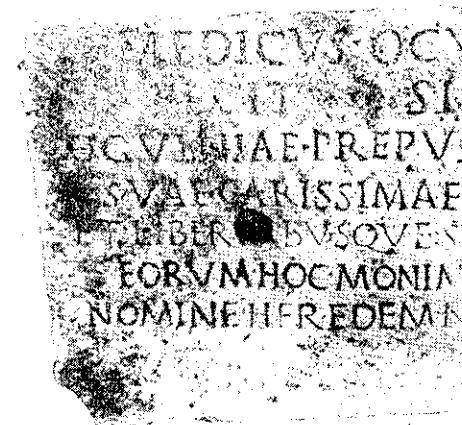 MEDICVS·OCV
FECIT SI
OGVLNIAE·PREPV
SVAE CARISSIMAE
ET LIBER BVSQVE·S
EORVM HOC MONIM
NOMINE HEREDEM N